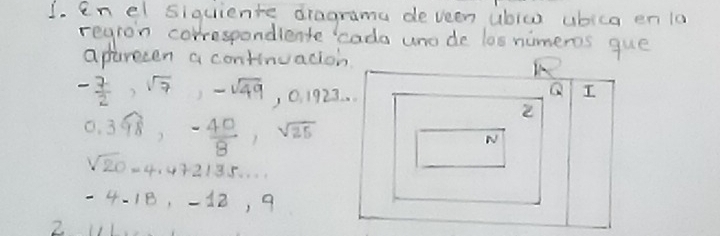 1. En el siguiente diagrama de veen ubica ubica en la
región correspondiente cada uno de los números que
aparecen a continuación.
-7/2 , √7 , -√49 , 0.1923...
0.398, -40/8 , √25
√20 = 4.472135....
-4.18, -12 , 9
R
Q I
Z
N
2.